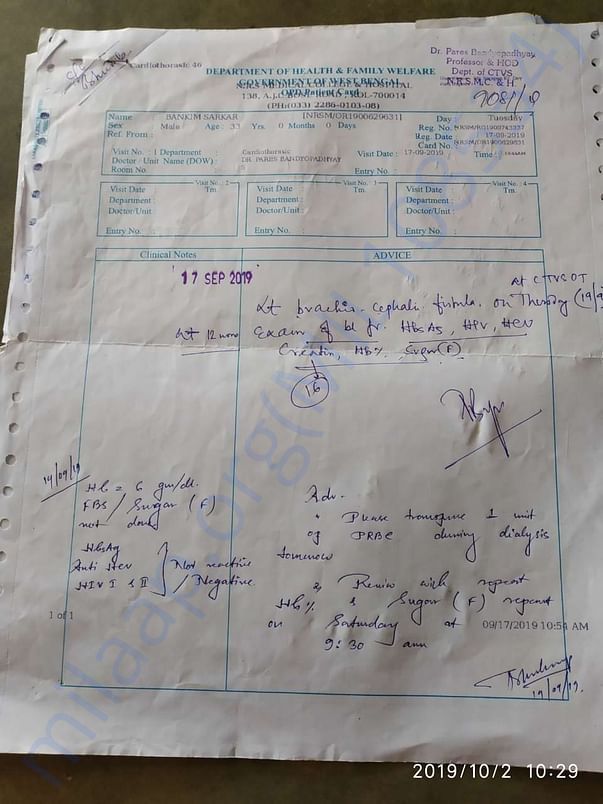 Cardiothorasic 46
Dr. Pares Bandyopadhyay
Professor & HOD
Dept. of CTVS
N.R.S.M.C. & H
DEPARTMENT OF HEALTH & FAMILY WELFARE
GOVERNMENT OF WEST BENGAL
N.R.S MEDICAL COLLEGE & HOSPITAL
OPD Patient Card
138, A.J.C. KOL-700014
(PH:(033) 2286-0103-08)
Name : BANKIM SARKAR [NRSM/OR1900629631] Day Tuesday
Sex Male Age : 33 Yrs. 0 Months 0 Days Reg. No.
Ref. From : Reg. Date 17-09-2019
Card No.
Visit No. : 1 Department : Cardiothorasic Visit Date : 17-09-2019 Time :
Doctor / Unit Name (DOW) : DR PARES BANDYOPADHYAY
Room No. Entry No. :
Visit No. : 2 Visit No. : 3 Visit No. : 4
Visit Date : Tm. Visit Date : Tm. Visit Date : Tm.
Department : Department : Department :
Doctor/Unit : Doctor/Unit : Doctor/Unit :
Entry No. : Entry No. : Entry No. :
Clinical Notes ADVICE
17 SEP 2019
at CTVS OT
Lt brachio-cephalic fistula on
HBsAg, HCV
Creatin, Hb%, Sugar (F)
16
19/09/19
Hb = 6 gm/dl.
FBS / Sugar (F)
not done
HbsAg
Anti HCV Non reactive
HIV I & II / Negative
Adv-
Please transfuse 1 unit
of PRBC during dialysis
tomorrow
2) Review with repeat
Hb% & Sugar (F) repeat
on Saturday at
9:30 am
19/09/19.
1 of 1
09/17/2019 10:54 AM
milaap.org
2019/10/2 10:29